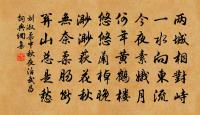 兩城相對峙
一水向東流
今夜素娥月
何年黃鶴樓
悠悠蘭棹晚
渺渺荻花秋
無奈柔腸斷
關山總是愁
劉淑柔中秋夜泊武昌
詞典網集